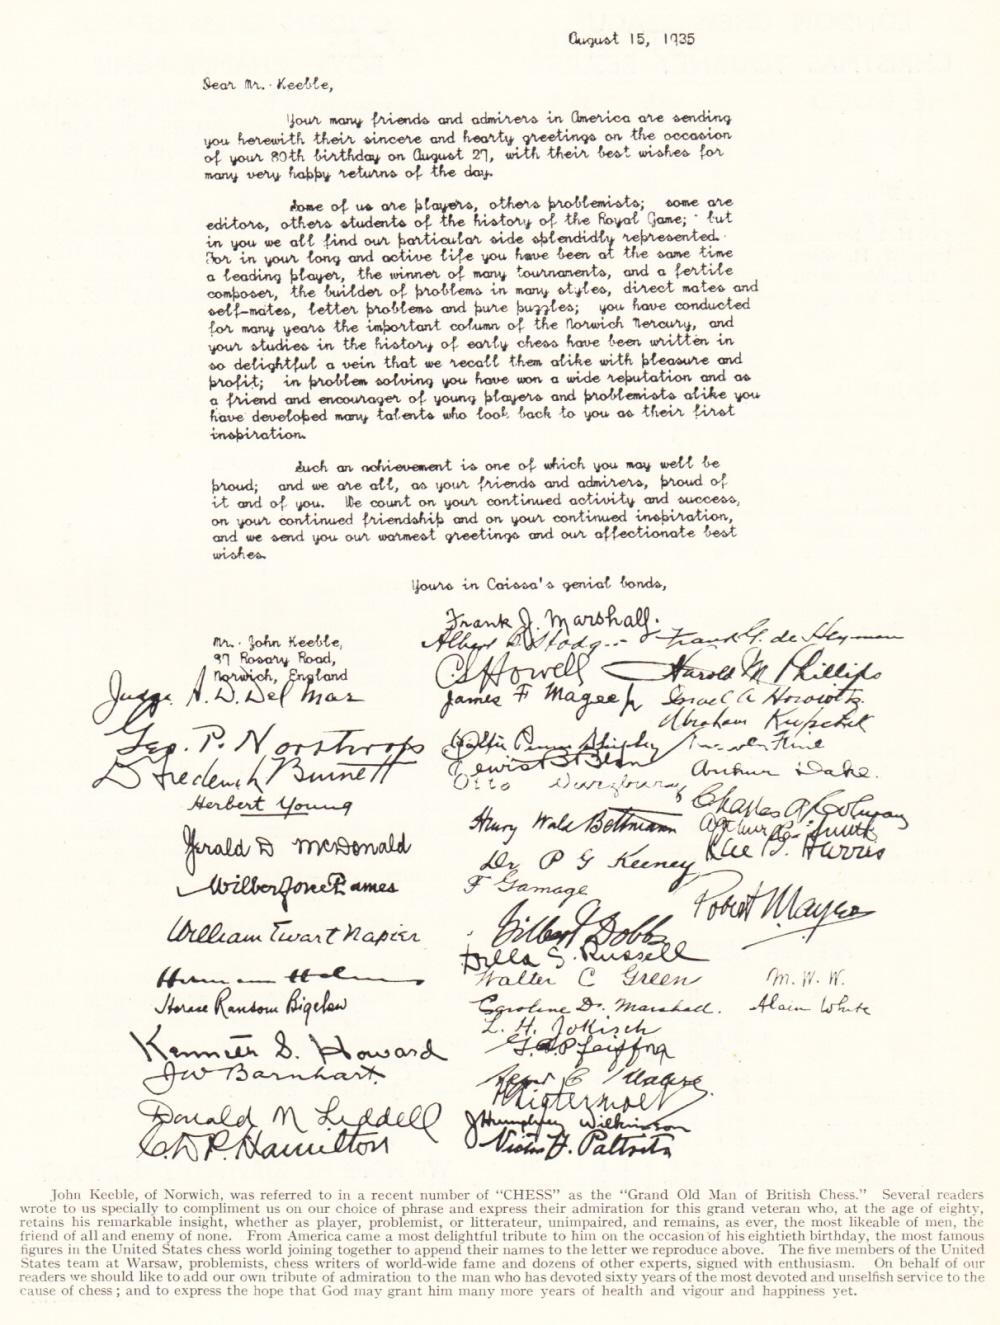 August 15, 1935
Dear Mr. Keeble,
Your many friends and admirers in America are sending
you herewith their sincere and hearty greetings on the occasion
of your 80th birthday on August 27, with their best wishes for
many very happy returns of the day.
Some of us are players, others problemists; some are
editors, others students of the history of the Royal Game; but
in you we all find our particular side splendidly represented.
For in your long and active life you have been at the same time
a leading player, the winner of many tournaments, and a fertile
composer, the builder of problems in many styles, direct mates and
self-mates, letter problems and pure puzzles; you have conducted
for many years the important column of the Norwich Mercury, and
your studies in the history of early chess have been written in
so delightful a vein that we recall them alike with pleasure and
profit; in problem solving you have won a wide reputation and as
a friend and encourager of young players and problemists alike you
have developed many talents who look back to you as their first
inspiration.
Such an achievement is one of which you may well be
proud; and we are all, as your friends and admirers, proud of
it and of you. We count on your continued activity and success,
on your continued friendship and on your continued inspiration,
and we send you our warmest greetings and our affectionate best
wishes.
Yours in Caissa's genial bonds,
Mr. John Keeble,
97 Rosary Road,
Norwich, England
Judge A. D. Del Mar
Geo. P. Northrop
Frederick Burnett
Herbert Young
Gerald D McDonald
William Ewart Napier
Horace Ransom Bigelow
Kenneth S. Howard
JW Barnhart
Donald M Liddell
C.D.P. Hamilton
Frank J. Marshall.
C S Howell
James F Magee Jr
Walter Penn Shipley
Otto
Henry Wald Bettmann
Dr P G Keeney
F Gamage
Gilbert Dobbs
Della S. Russell
Walter C Green
Caroline D. Marshall.
L. H. Jokisch
J Humphrey Wilkinson
Harold M Phillips
Israel A Horowitz
Abraham Kupchik
Fine
Arthur Dake.
Charles
Robert
M. W. W.
Alain White
John Keeble, of Norwich, was referred to in a recent number of "CHESS" as the "Grand Old Man of British Chess." Several readers
wrote to us specially to compliment us on our choice of phrase and express their admiration for this grand veteran who, at the age of eighty,
retains his remarkable insight, whether as player, problemist, or litterateur, unimpaired, and remains, as ever, the most likeable of men, the
friend of all and enemy of none. From America came a most delightful tribute to him on the occasion of his eightieth birthday, the most famous
figures in the United States chess world joining together to append their names to the letter we reproduce above. The five members of the United
States team at Warsaw, problemists, chess writers of world-wide fame and dozens of other experts, signed with enthusiasm. On behalf of our
readers we should like to add our own tribute of admiration to the man who has devoted sixty years of the most devoted and unselfish service to the
cause of chess; and to express the hope that God may grant him many more years of health and vigour and happiness yet.